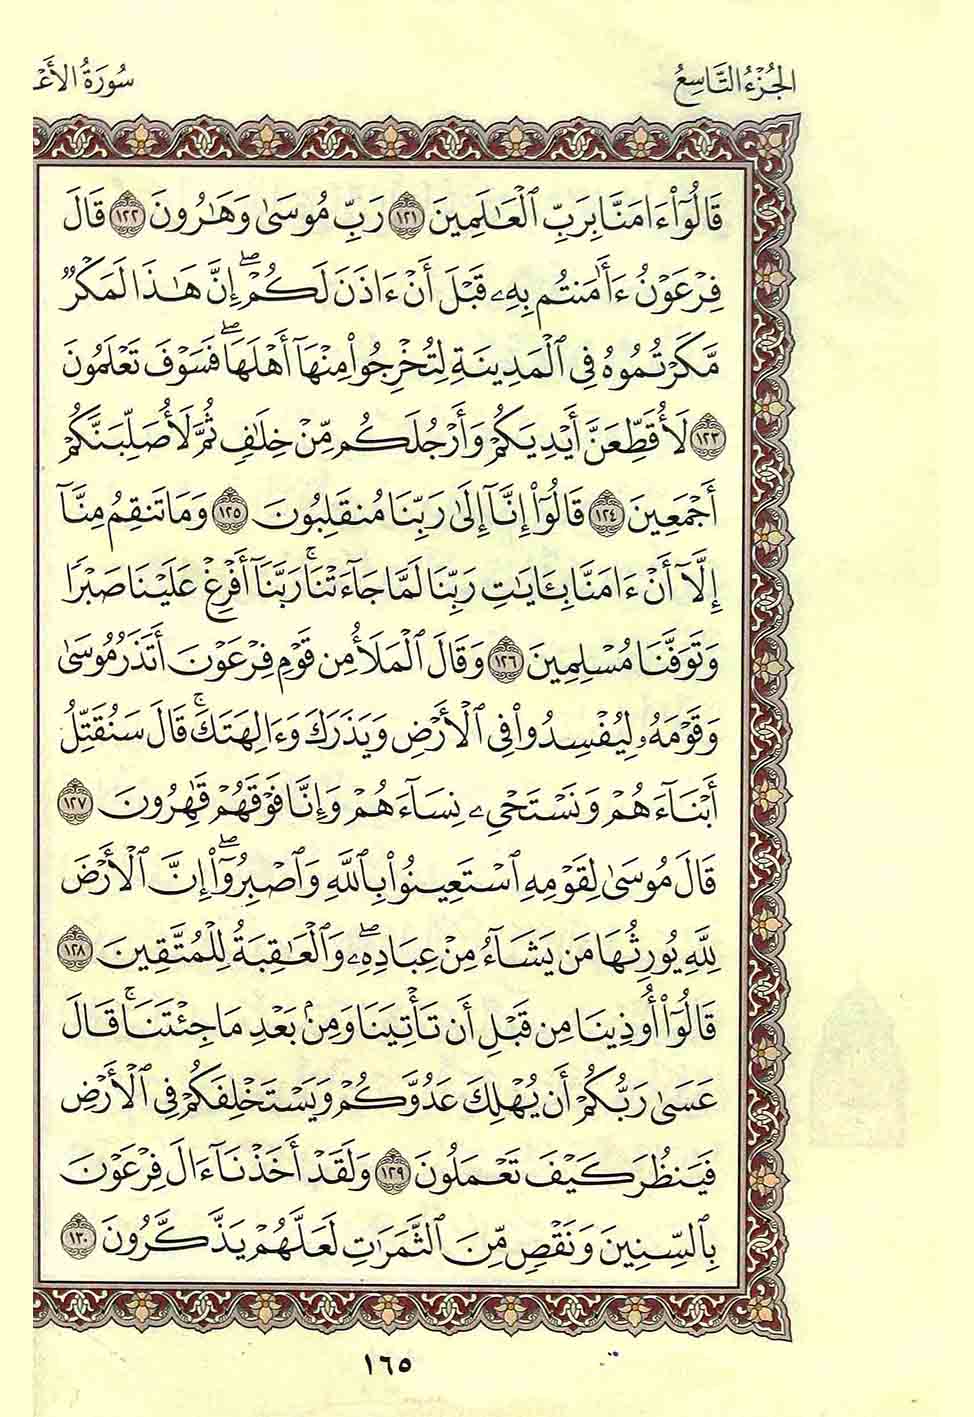 الجُزْءُ التَّاسِعُ
سُورَةُ الأَعْ
قَالُوٓاْ ءَامَنَّا بِرَبِّ ٱلْعَٰلَمِينَ ١٢١ رَبِّ مُوسَىٰ وَهَٰرُونَ ١٢٢ قَالَ
فِرْعَوْنُ ءَامَنتُم بِهِۦ قَبْلَ أَنْ ءَاذَنَ لَكُمْۖ إِنَّ هَٰذَا لَمَكْرٌ
مَّكَرْتُمُوهُ فِي ٱلْمَدِينَةِ لِتُخْرِجُواْ مِنْهَآ أَهْلَهَاۖ فَسَوْفَ تَعْلَمُونَ
١٢٣ لَأُقَطِّعَنَّ أَيْدِيَكُمْ وَأَرْجُلَكُم مِّنْ خِلَٰفٍ ثُمَّ لَأُصَلِّبَنَّكُمْ
أَجْمَعِينَ ١٢٤ قَالُوٓاْ إِنَّآ إِلَىٰ رَبِّنَا مُنقَلِبُونَ ١٢٥ وَمَا تَنقِمُ مِنَّآ
إِلَّآ أَنْ ءَامَنَّا بِـَٔايَٰتِ رَبِّنَا لَمَّا جَآءَتْنَاۚ رَبَّنَآ أَفْرِغْ عَلَيْنَا صَبْرًا
وَتَوَفَّنَا مُسْلِمِينَ ١٢٦ وَقَالَ ٱلْمَلَأُ مِن قَوْمِ فِرْعَوْنَ أَتَذَرُ مُوسَىٰ
وَقَوْمَهُۥ لِيُفْسِدُواْ فِي ٱلْأَرْضِ وَيَذَرَكَ وَءَالِهَتَكَۚ قَالَ سَنُقَتِّلُ
أَبْنَآءَهُمْ وَنَسْتَحْيِۦ نِسَآءَهُمْ وَإِنَّا فَوْقَهُمْ قَٰهِرُونَ ١٢٧
قَالَ مُوسَىٰ لِقَوْمِهِ ٱسْتَعِينُواْ بِٱللَّهِ وَٱصْبِرُوٓاْۖ إِنَّ ٱلْأَرْضَ
لِلَّهِ يُورِثُهَا مَن يَشَآءُ مِنْ عِبَادِهِۦۖ وَٱلْعَٰقِبَةُ لِلْمُتَّقِينَ ١٢٨
قَالُوٓاْ أُوذِينَا مِن قَبْلِ أَن تَأْتِيَنَا وَمِنۢ بَعْدِ مَا جِئْتَنَاۚ قَالَ
عَسَىٰ رَبُّكُمْ أَن يُهْلِكَ عَدُوَّكُمْ وَيَسْتَخْلِفَكُمْ فِي ٱلْأَرْضِ
فَيَنظُرَ كَيْفَ تَعْمَلُونَ ١٢٩ وَلَقَدْ أَخَذْنَآ ءَالَ فِرْعَوْنَ
بِٱلسِّنِينَ وَنَقْصٍ مِّنَ ٱلثَّمَرَٰتِ لَعَلَّهُمْ يَذَّكَّرُونَ ١٣٠
١٦٥